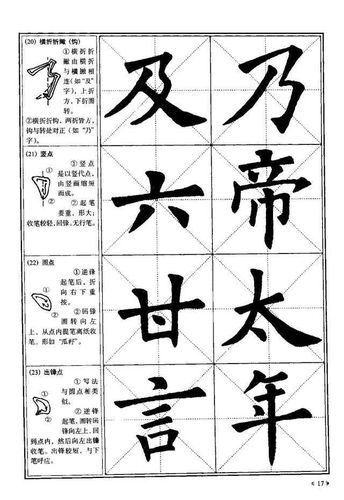 (20) 横折折撇(钩)
①横折折
撇由横折
与横撇相
连(如“及”
字),上折
方,下折圆
转。
②横折折钩,两折皆方,
钩与转处对正(如“乃”
字)。
及
乃
(21) 竖点
①竖点
是以竖代点,
由竖画缩短
而成。
②起笔
要重,形大;
收笔较轻,回锋,无行笔。
①
②
六
帝
(22) 圆点
①逆锋
起笔后,折
向右下重
按。
②转锋
圆转向左
上,从点内提笔离纸收
笔。形如“瓜籽”。
①
②
甘
太
(23) 出锋点
①写法
与圆点相类
似。
②逆锋
起笔,圆转回
锋向左上,回
到点内,然后向左出锋
收笔。出锋较短,与下
笔呼应。
①
②
言
年
《 17 》